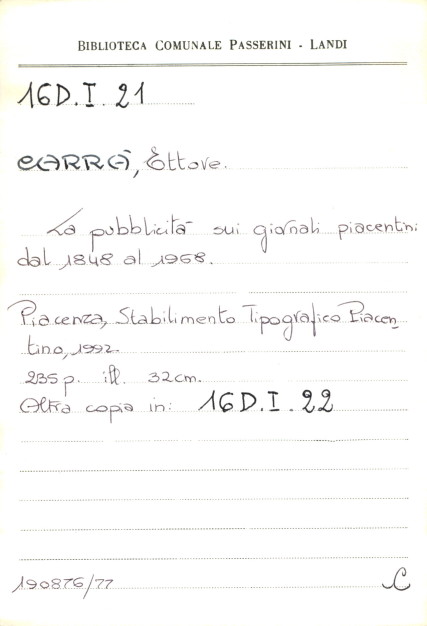 BIBLIOTECA COMUNALE PASSERINI - LANDI
16D.I.21
CARRÀ, Ettore.
La pubblicità sui giornali piacentini
dal 1848 al 1958.
Piacenza, Stabilimento Tipografico Piacen
tino, 1992.
235 p. ill. 32cm.
Altra copia in: 16D.I.22
190876/77
C